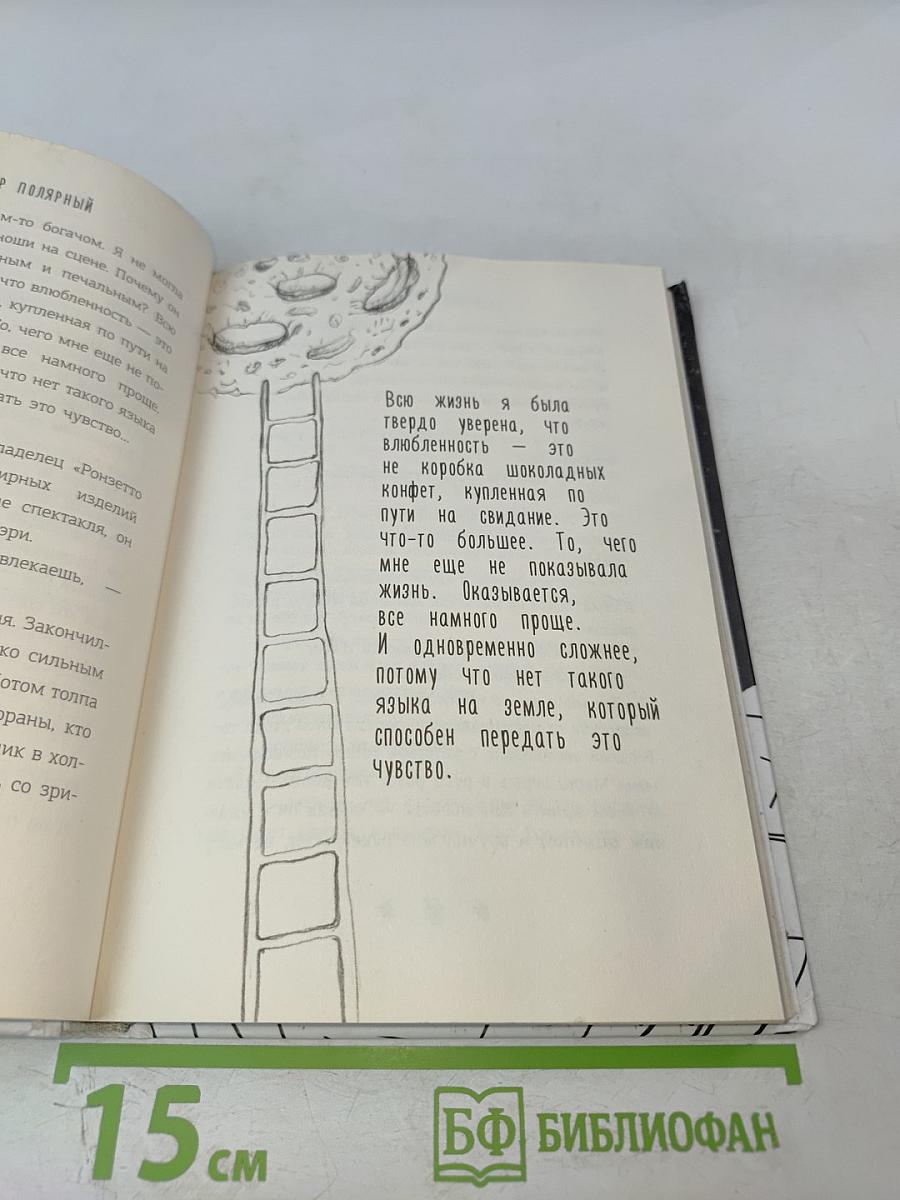 Р ПОЛЯРНЫЙ
м-то богачом. Я не могла
ноши на сцене. Почему он
ным и печальным? Всю
что влюбленность — это
, купленная по пути на
о, чего мне еще не по-
все намного проще.
что нет такого языка
ать это чувство...
ладелец «Ронзетто
ирных изделий
е спектакля, он
эри.
влекаешь, —
я. Закончил-
ко сильным
отом толпа
ораны, кто
ик в хол-
со зри-
Всю жизнь я была
твердо уверена, что
влюбленность — это
не коробка шоколадных
конфет, купленная по
пути на свидание. Это
что-то большее. То, чего
мне еще не показывала
жизнь. Оказывается,
все намного проще.
И одновременно сложнее,
потому что нет такого
языка на земле, который
способен передать это
чувство.
15 см
БФ БИБЛИОФАН